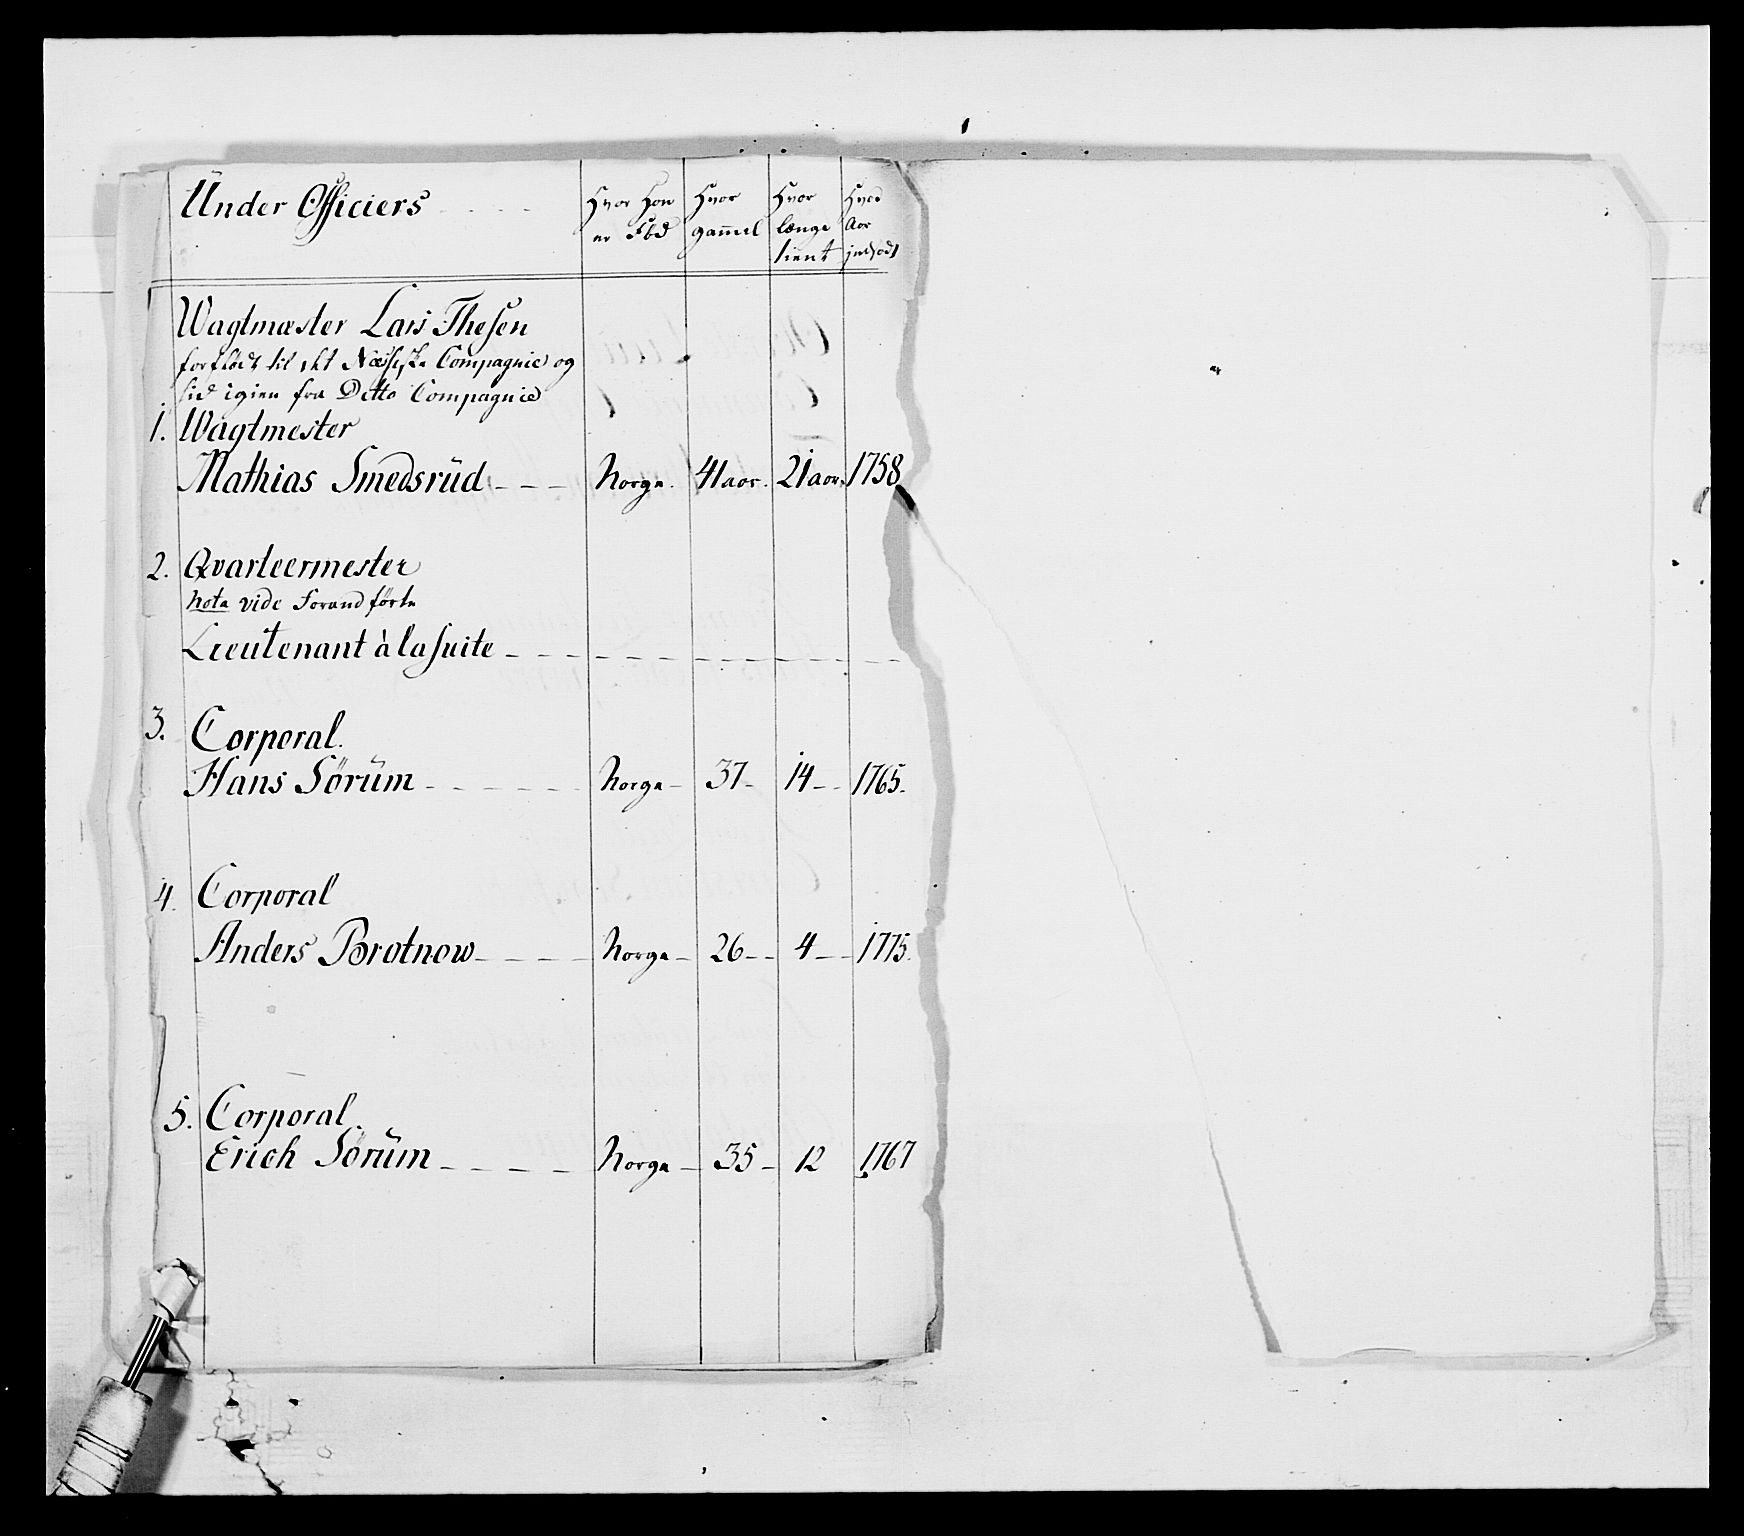 Under Officiers
Hvor Han er Fød
Hvor gam̄el
Hvor længe tient
Hvad Aar
Wagtmæster Lars Thesen
forflødt til det Næsiske Compagnie og
sid igien fra Ditto Compagnie
1. Wagtmester
Mathias Smedsrüd Norge. 41 aar. 21 aar. 1758
2. Qvarteermester
Nota vide Forandførte
Lieutenant à la Suite
3. Corporal.
Hans Sörüm Norge 37 14 1765.
4. Corporal
Anders Brotnow Norge 26 4 1775.
5. Corporal.
Erich Sörüm Norge 35 12 1767